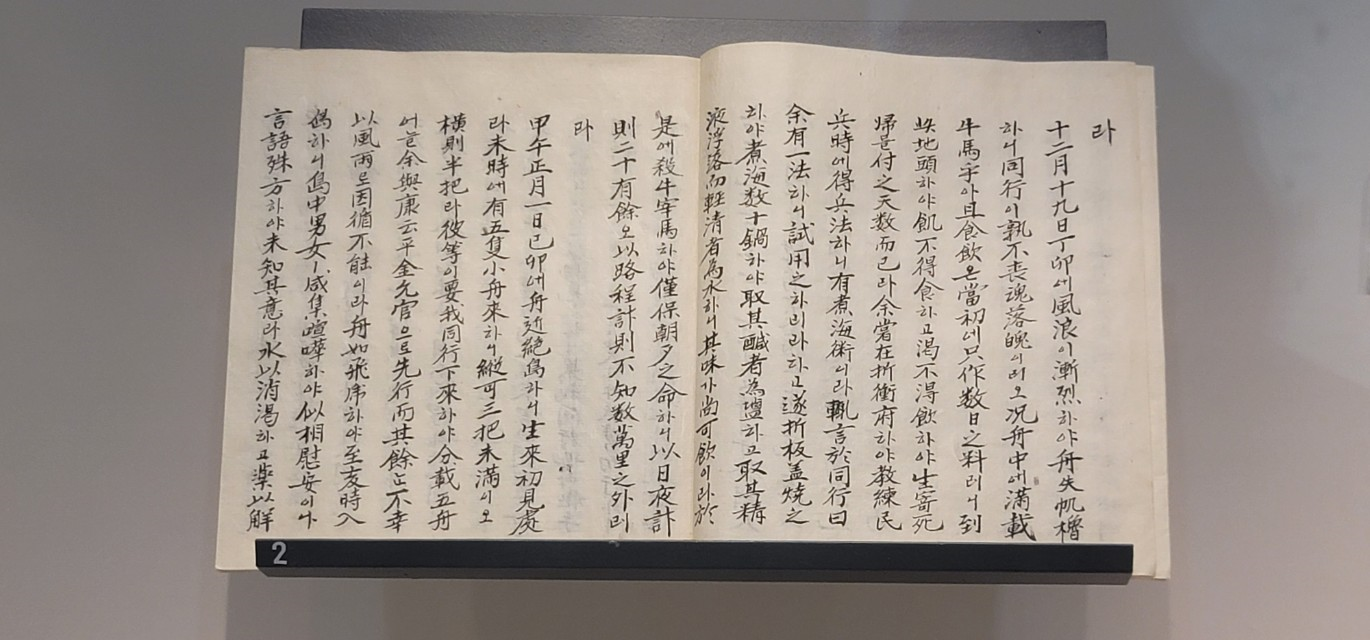 라
十二月十九日丁卯에風浪이漸烈하야舟失帆櫓
하니同行이孰不喪魂落魄이리오況舟中에滿載
牛馬乎아且食飮은當初에只作数日之料러니到
此地頭하야飢不得食하고渴不得飮하야生寄死
歸를付之天数而已라余嘗在折衝府하야教練民
兵時에得兵法하니有煮海術이라輒言於同行曰
余有一法하니試用之하리라하고遂折板盖燒之
하야煮海数十鍋하야取其鹹者為塩하고取其精
液浮潞而輕清者為水하니其味가尚可飮이라於
是에殺牛宰馬하야僅保朝夕之命하니以日夜計
則二十有餘오以路程計則不知数萬里之外러
라
甲午正月一日己卯에舟近絶島하니生來初見處
라未時에有五隻小舟來하니縱可三把未滿이오
橫則半把라彼等이要我同行下來하야分載五舟
어늘余與康云平金允官으로先行而其餘는不幸
以風雨로因循不能이라舟如飛席하야至亥時入
島하니島中男女ㅣ咸集喧嘩하야似相慰安이나
言語殊方하야未知其意라水以消渴하고藥以解
2